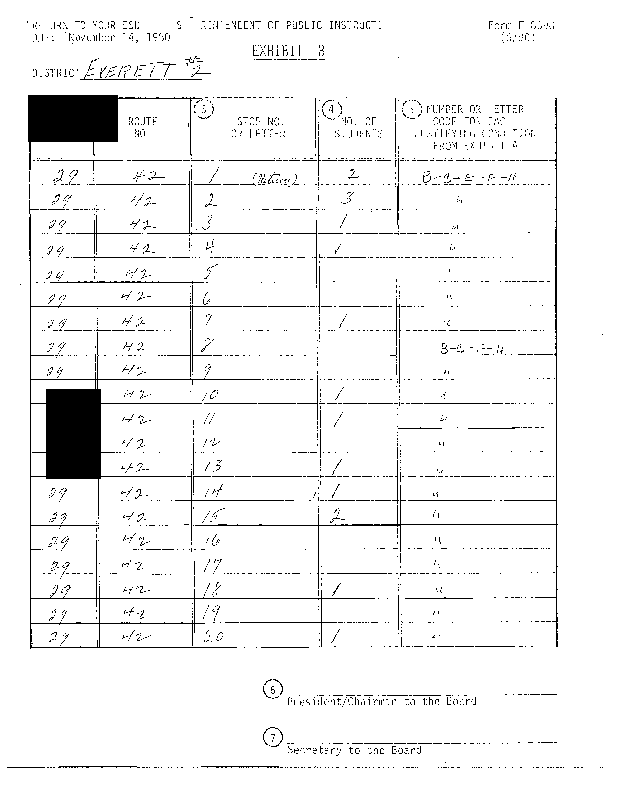 RETURN TO YOUR ESD SUPERINTENDENT OF PUBLIC INSTRUCTION Form F
DUE: November 14, 1980 (6/80)
EXHIBIT B
DISTRICT EVERETT #2
ROUTE NO 3 STOP NO. OR LETTER 4 NO. OF STUDENTS NUMBER OR LETTER CODE FOR EACH QUALIFYING CONDITION FROM EXHIBIT A
29 42 1 2
29 42 2 3 "
29 42 3 1 "
29 42 4 1 "
29 42 5 "
29 42 6 "
29 42 7 1 "
29 42 8
29 42 9 "
42 10 1 "
42 11 1 "
42 12 "
42 13 1 "
29 42 14 1 "
29 42 15 2 "
29 42 16 "
29 42 17 "
29 42 18 1 "
29 42 19 "
29 42 20 1 "
6
President/Chairman to the Board
7
Secretary to the Board